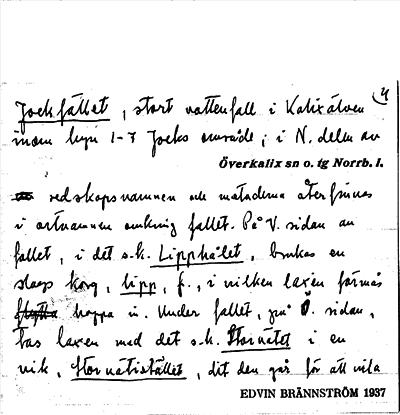 Jockfallet, stort vattenfall i Kalixälven 4
inom byn 1-7 Jocks område; i N. delen av
Överkalix sn o. tg Norrb. l.
redskapsnamnen och metoderna återfinnas
i ortnamnen omkring fallet. På V. sidan av
fallet, i det s.k. Lipphålet, brukas en
slags korg, lipp, f., i vilken laxen förmås
hoppa in. Under fallet, på Ö. sidan,
tas laxen med det s.k. Stornätet i en
vik, Stornätistället, dit den går för att vila
EDVIN BRÄNNSTRÖM 1937